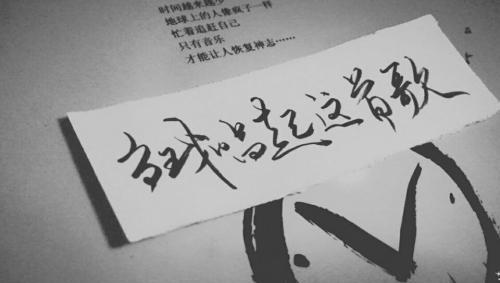 时间越来越少
地球上的人像疯子一样
忙着追赶自己
只有音乐
才能让人恢复神志……
当我唱起这首歌